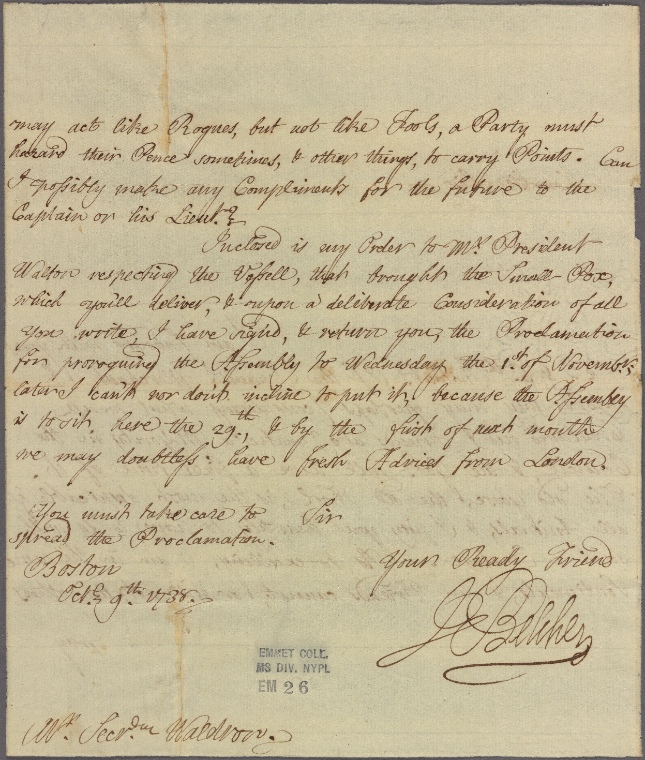 may act like Rogues, but not like Fools, a Party must
hazard their Pence sometimes, & other things, to carry Points. Can
I possibly make any Compliments for the future to the
Captain or his Lieut.t?
Inclosed is my Order to Mr. President
Walton respecting the Vessell, that brought the Small-Pox,
which you'll deliver, & upon a deliberate Consideration of all
you write, I have sign'd, & return you, the Proclamation
for proroguing the Assembly to Wednesday the 1.st of Novemb.r:
later I can't nor don't incline to put it, because the Assembly
is to sit here the 29.th, & by the first of next month
we may doubtless have fresh Advices from London.
You must take care to Sir
spread the Proclamation.
Your Ready Friend
Boston
Oct.o 9.th 1738.
J Belcher
EMMET COLL.
MS DIV. NYPL
EM 26
Mr. Secr.ry Waldron.